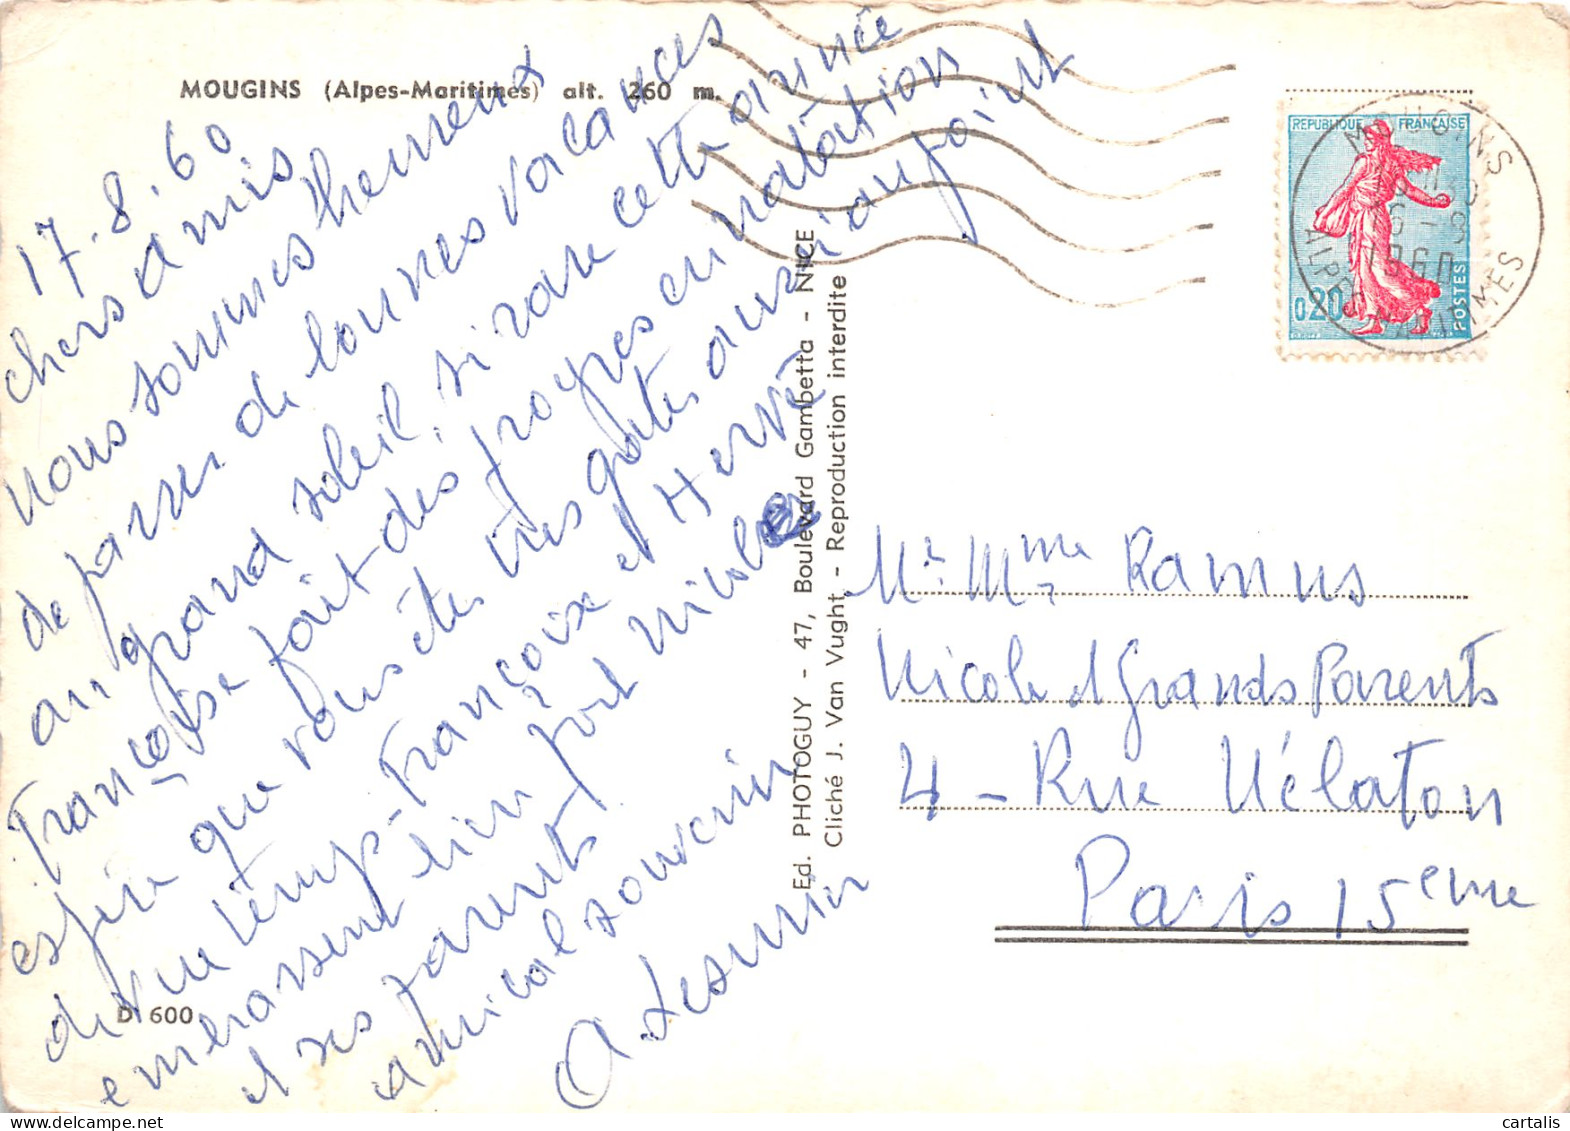 MOUGINS (Alpes-Maritimes) alt. 260 m.
17.8.60
chers amis
nous sommes heureux
de passer de bonnes vacances
au grand soleil, si rare cette année
Françoise fait des progrès en natation
espère que vous êtes très gatés aussi au point
de vue temps - Françoise et Hervé
embrassent bien fort Nicole
et ses parents
amical souvenir
Ed. PHOTOGUY - 47, Boulevard Gambetta - NICE
Cliché J. Van Vught - Reproduction interdite
D. 600
REPUBLIQUE FRANÇAISE
0,20
POSTES
MOUGINS
1960
ALPES MARITIMES
Mr. Mme Ramus
Nicole et Grands Parents
4 - Rue Nélaton
Paris 15eme
cartalis
delcampe.net